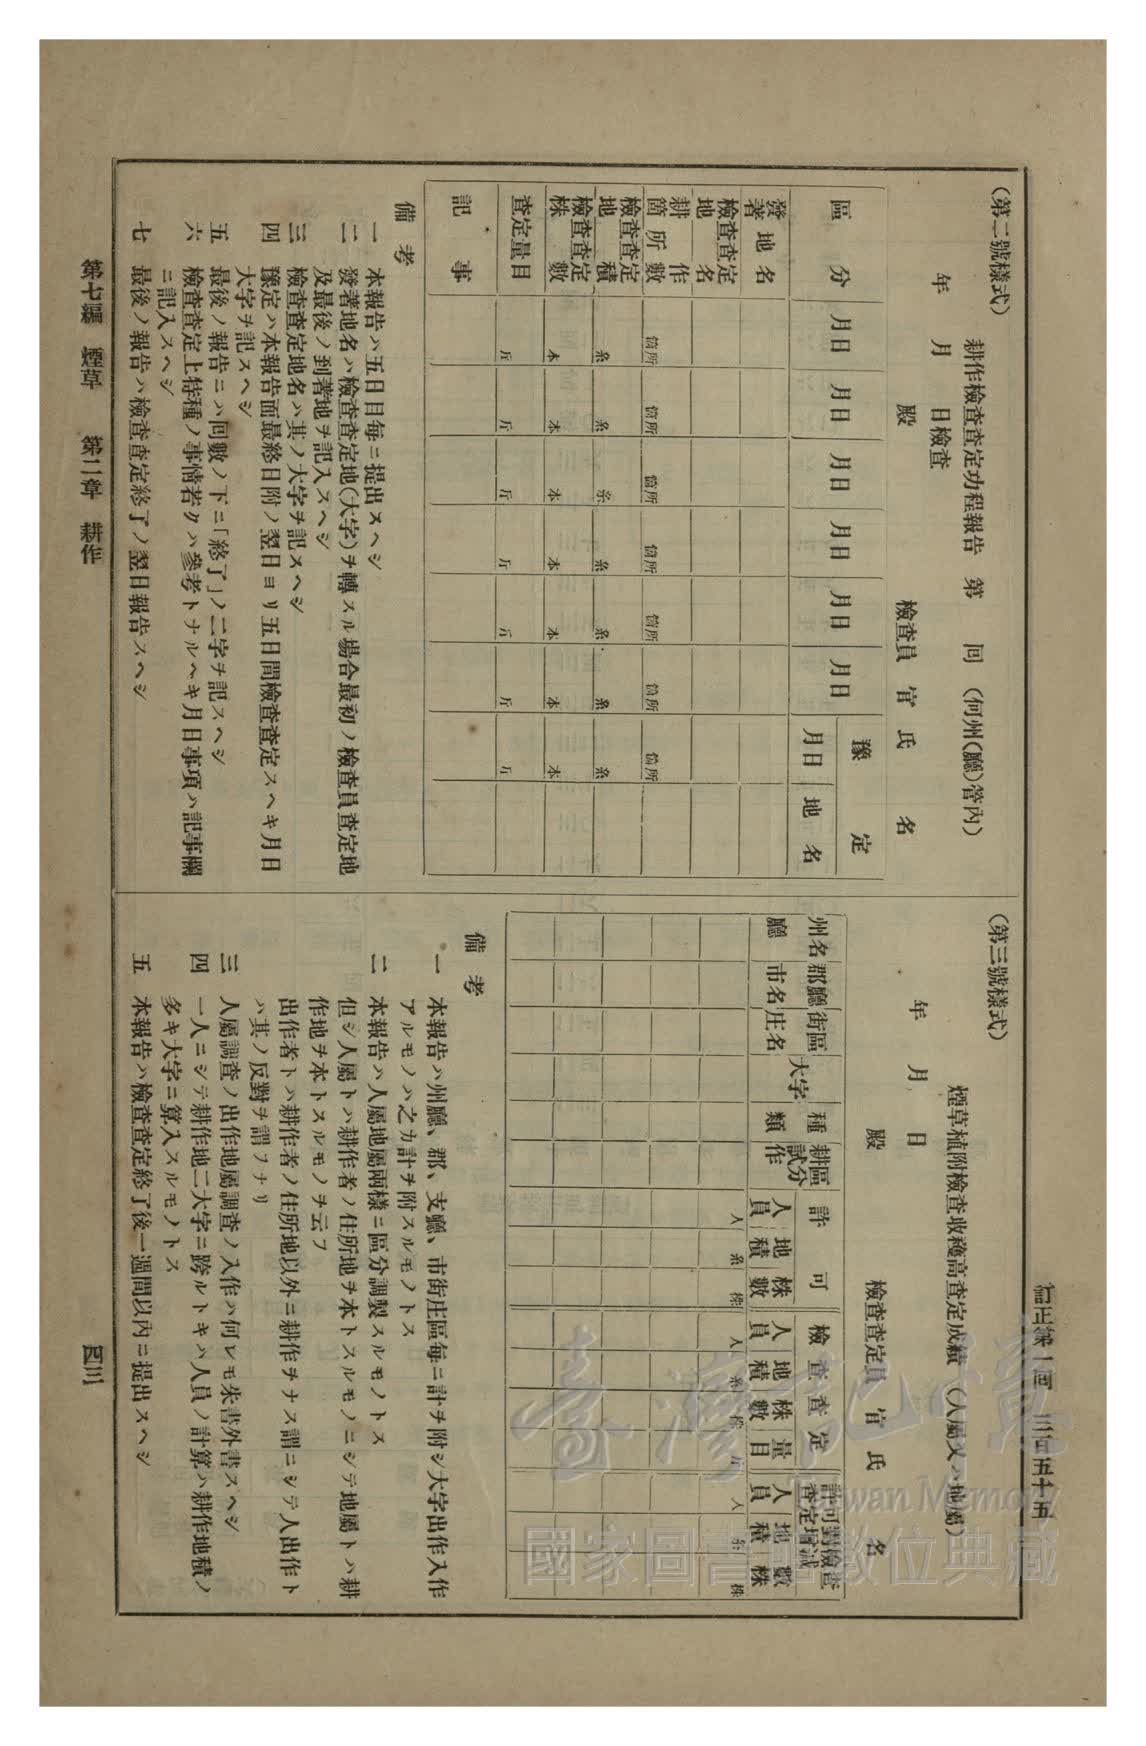 (第二號樣式)
耕作檢查查定功程報告 第 回 (何州(廳)管內)
年 月 日檢查
殿
檢查員 官 氏 名
區 分
月日
月日
月日
月日
月日
月日
豫 定
月日
地名
發著地名
檢查查定地名
耕作箇所數
箇所
箇所
箇所
箇所
箇所
箇所
箇所
檢查查定地積
糸
糸
糸
糸
糸
糸
糸
檢查查定株數
本
本
本
本
本
本
本
查定量目
斤
斤
斤
斤
斤
斤
斤
記事
備考
一 本報告ハ五日目每ニ提出スヘシ
二 發著地名ハ檢查查定地(大字)ヲ轉スル場合最初ノ檢查員查定地
及最後ノ到著地ヲ記入スヘシ
三 檢查查定地名ハ其ノ大字ヲ記スヘシ
四 豫定ハ本報告面最終日附ノ翌日ヨリ五日間檢查查定スヘキ月日
大字ヲ記スヘシ
五 最後ノ報告ニハ回數ノ下ニ「終了」ノ二字ヲ記スヘシ
六 檢查查定上特種ノ事情若クハ參考トナルヘキ月日事項ハ記事欄
ニ記入スヘシ
七 最後ノ報告ハ檢查查定終了ノ翌日報告スヘシ
(第三號樣式)
煙草植附檢查收穫高查定成績 (人屬又ハ地屬)
年 月 日
殿
檢查查定員 官 氏 名
州廳名
郡廳市名
街區庄名
大字
種類
耕試作區分
許可
人員
地積
株數
檢查查定
人員
地積
株數
量目
許可對檢查查定增減
人員
地積
株數
人
糸
株
人
糸
株
斤
人
糸
株
備考
一 本報告ハ州廳、郡、支廳、市街庄區每ニ計ヲ附シ大字出作入作
アルモノハ之カ計ヲ附スルモノトス
二 本報告ハ人屬地屬兩樣ニ區分調製スルモノトス
但シ人屬トハ耕作者ノ住所地ヲ本トスルモノニシテ地屬トハ耕
作地ヲ本トスルモノヲ云フ
出作者トハ耕作者ノ住所地以外ニ耕作ヲナス謂ニシテ人出作ト
ハ其ノ反對ヲ謂フナリ
三 人屬調查ノ出作地屬調查ノ入作ハ何レモ朱書外書スヘシ
四 一人ニシテ耕作地二大字ニ跨ルトキハ人員ノ計算ハ耕作地積ノ
多キ大字ニ算入スルモノトス
五 本報告ハ檢查查定終了後一週間以內ニ提出スヘシ
第七編 煙草 第二章 耕作
四三
臺灣記憶
Taiwan Memory
國家圖書館數位典藏